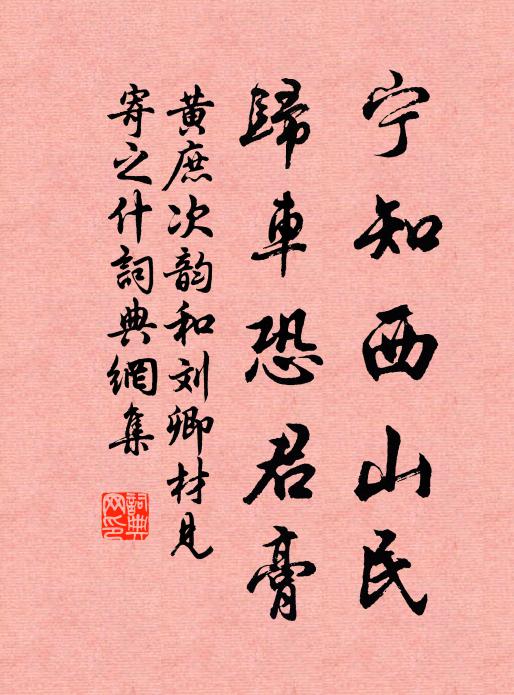 宁知西山民
歸車恐君膏
黄庶次韵和刘卿材见
寄之什詞典網集
詞典网印